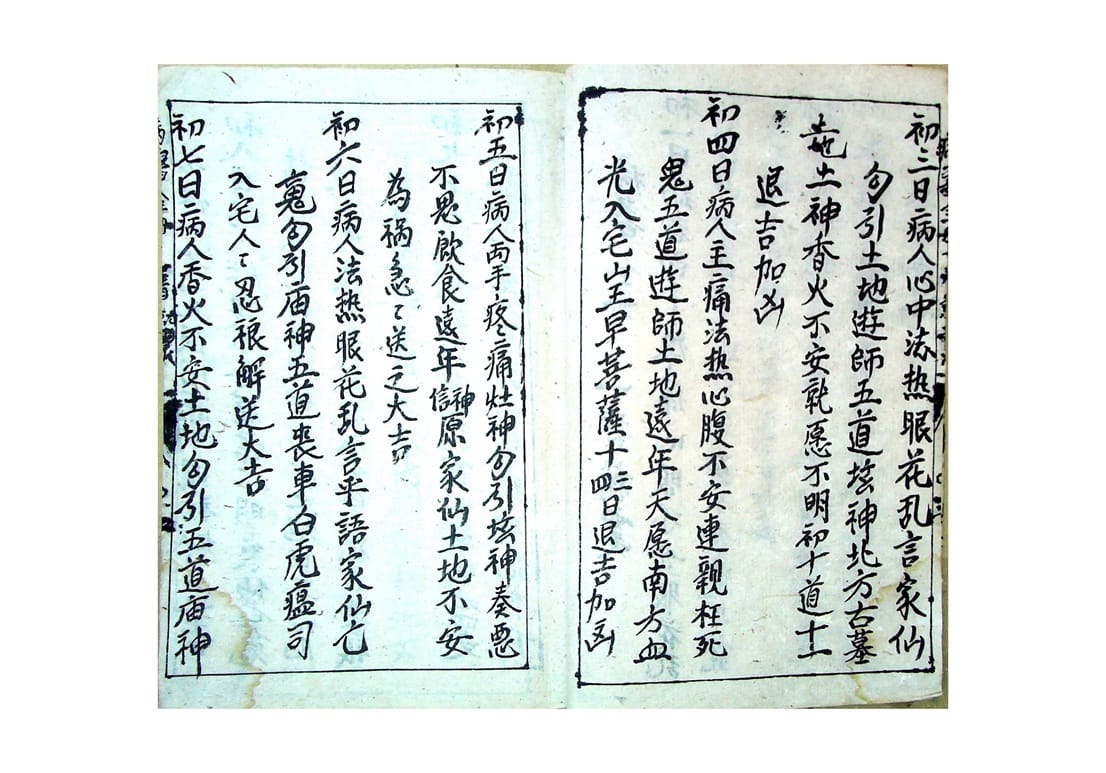 初三日病人心中法热眼花乱言家仙
勾引土地遊師五道坛神北方古墓
土神香火不安執愿不明初十道十一
退吉加凶
初四日病人主痛法热心腹不安連親枉死
鬼五道遊師土地遠年天愿南方血
光入宅山王早菩薩十三四日退吉加凶
初五日病人両手疼痛灶神勾引坛神奏悪
不思飲食遠年神信原家仙土地不安
為祸急〻送之大吉
初六日病人法热眼花乱言乎語家仙亡
勾引庙神五道丧車白虎瘟司
入宅人〻忍
解送大吉
初七日病人香火不安土地勾引五道庙神